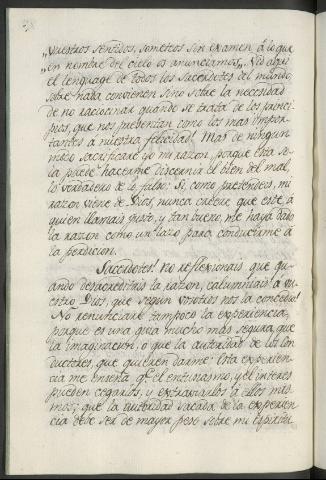 „ vuestros sentidos, someteos sin examen á lo que
„ en nombre del cielo os anunciamos„. Ved aqui
el lenguage de todos los Sacerdotes del mundo;
sobre nada convienen sino sobre la necesidad
de no raciocinar quando se trata de los princi-
pios, que nos presentan como los mas impor-
tantes á nuestra felicidad! Mas de ningun
modo sacrificaré yo mi razon, porque esta so-
la puede hacerme discernir el bien del mal,
lo verdadero de lo falso. Si, como pretendeis, mi
razon viene de Dios, nunca creeré que este, á
quien llamais justo, y tan bueno, me haya dado
la razon como un lazo para conducirme á
la perdicion.
Sacerdotes! no reflexionais que qu-
ando desacreditais la razon, calumniais á vu-
estro Dios, que segun vosotros nos la concede!
No renunciaré tampoco la experiencia,
porque es una guia mucho mas segura, que
la imaginacion, o que la autoridad de los con
ductores, que quieren darme: Esta experien-
cia me enseña q.e el entusiasmo, y el interes
pueden cegarlos, y extraviarlos á ellos mis-
mos; que la autoridad sacada de la experien-
cia debe ser de mayor peso sobre mi espiritu